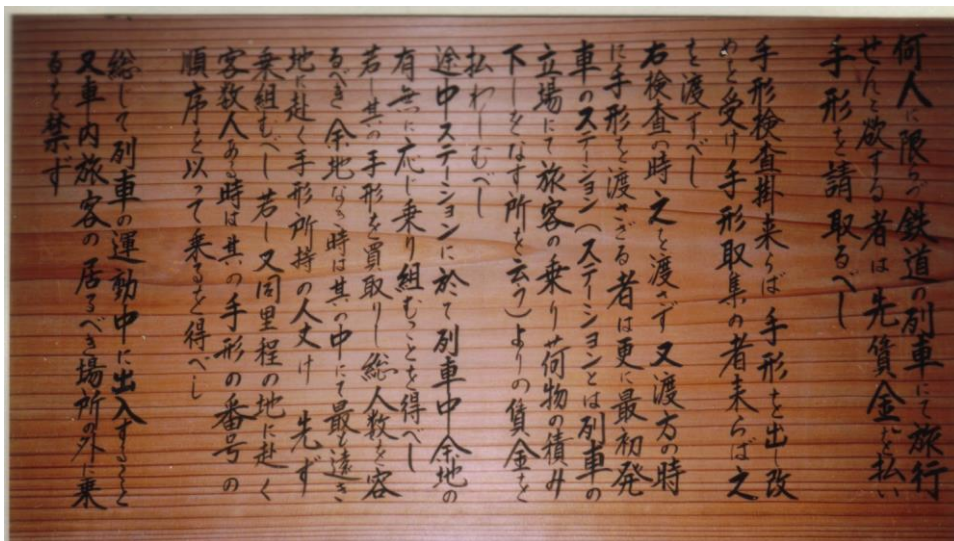 何人に限らず鉄道の列車にて旅行
せんと欲する者は先賃金を払い
手形を請取るべし
手形検査掛来らば手形を出し改
めを受け手形取集の者来らば之
を渡すべし
右検査の時之を渡さず又渡方の時
に手形を渡さざる者は更に最初発
車のステーション(ステーションとは列車の
立場にて旅客の乗り荷物の積み
下しをなす所を云う)よりの賃金を
払わしむべし
途中ステーションに於て列車中余地の
有無に応じ乗り組むことを得べし
若し其の手形を買取りし総人数を容
るべき余地なき時は其の中にて最も遠き
地に赴く手形所持の人丈け 先ず
乗組むべし若し又同里程の地に赴く
客数人ある時は其の手形の番号の
順序を以って乗るを得べし
総して列車の運動中に出入すること
又車内旅客の居るべき場所の外に乗
るを禁ず